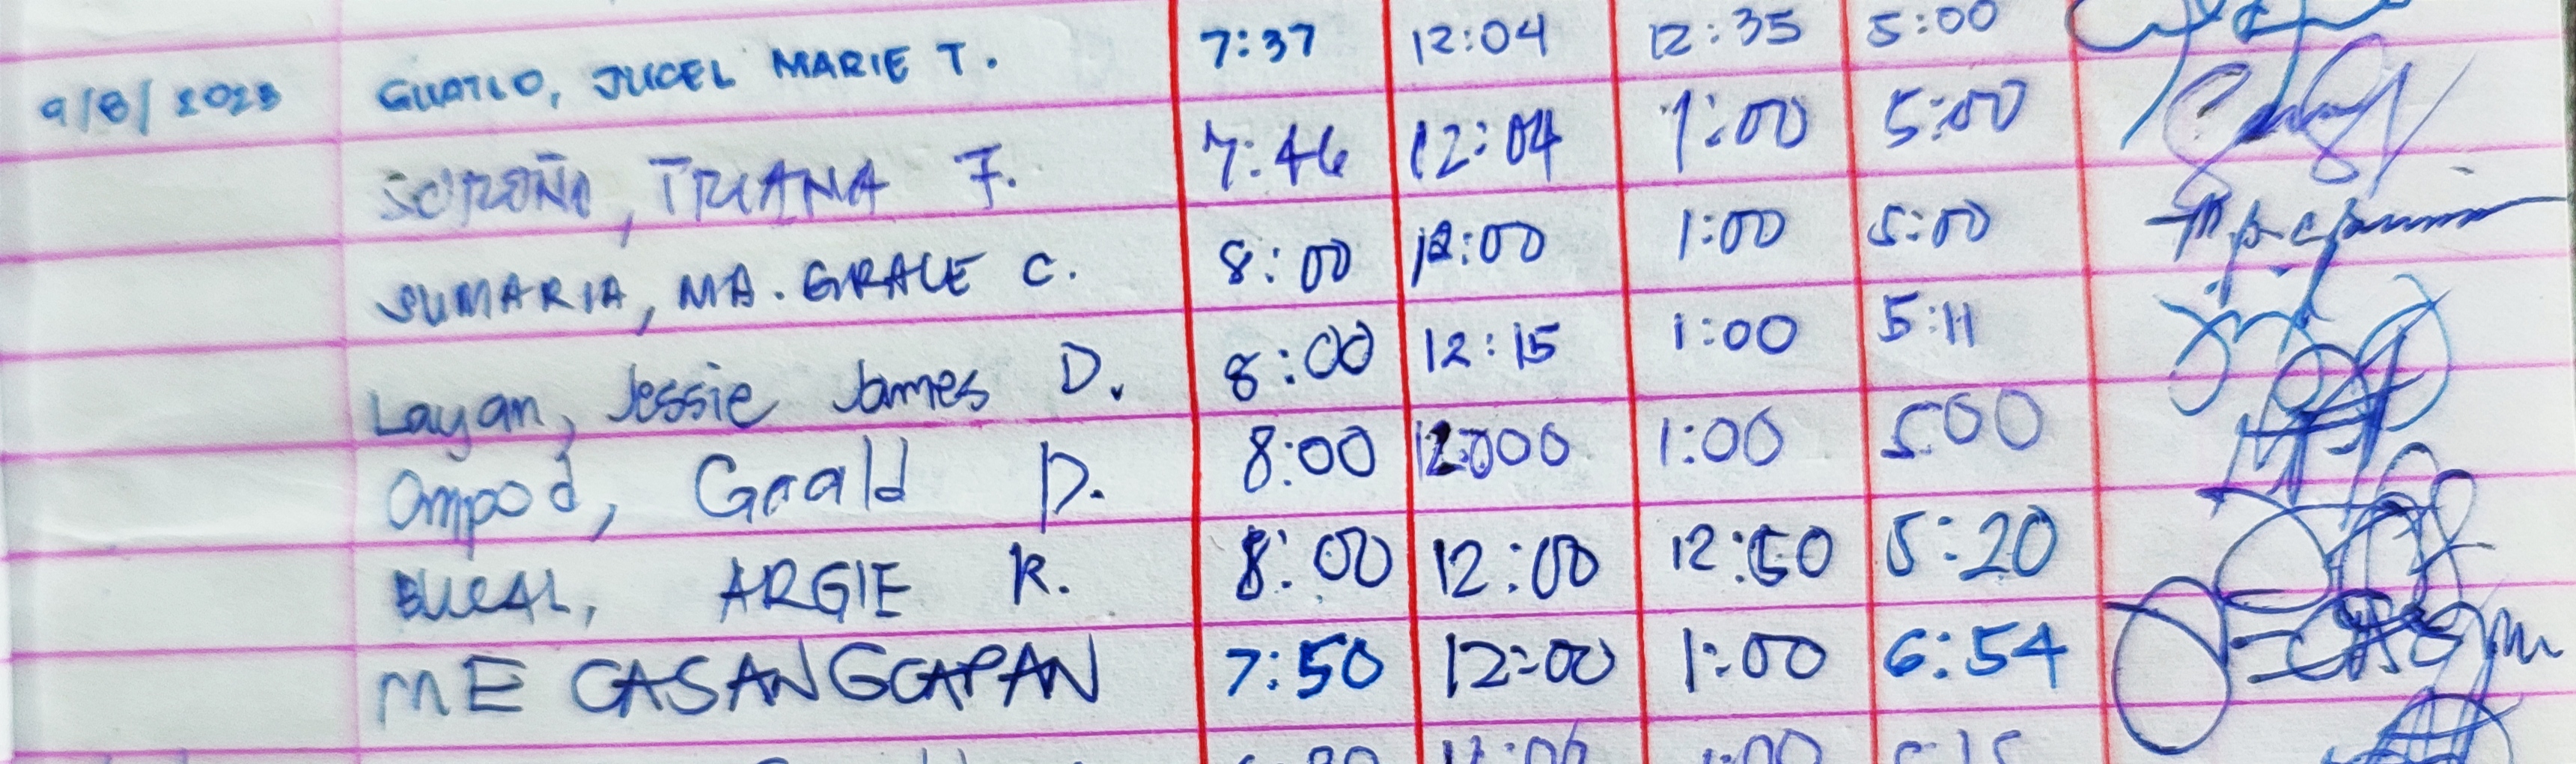 9/8/2023 GUATLO, JUCEL MARIE T. 7:37 12:04 12:35 5:00
SOROÑO, TRIANA F. 7:46 12:04 1:00 5:00
SUMARIA, MA. GRACE C. 8:00 12:00 1:00 5:00
Layan, Jessie James D. 8:00 12:15 1:00 5:11
Ompod, Gerald D. 8:00 12:000 1:00 5:00
BUCAL, ARGIE R. 8:00 12:00 12:50 5:20
ME CASANGCAPAN 7:50 12:00 1:00 6:54